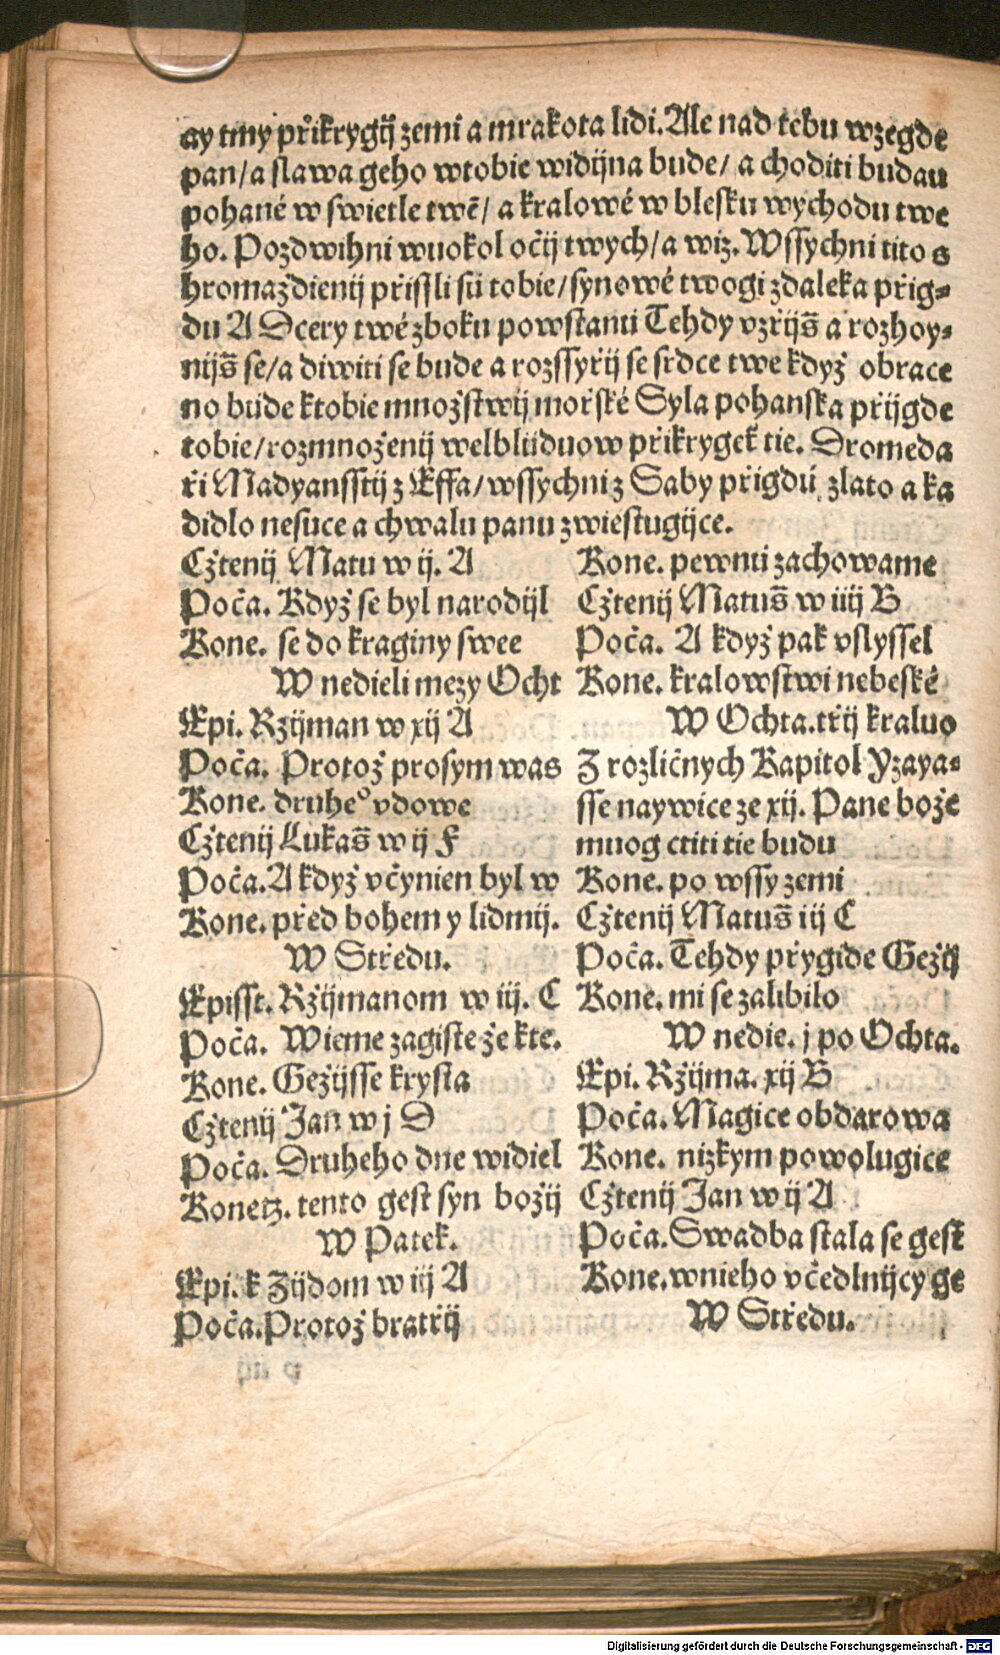 ay tmy přikrygij zemi a mrakota lidi. Ale nad tebu wzegde
pan/ a slawa geho wtobie widijna bude/ a choditi budau
pohané w swietle twé/ a kralowé w blesku wychodu twe
ho. Pozdwihni wuokol očij twych/ a wiz. Wssychni tito s
hromazdienij přissli sú tobie/ synowé twogi zdaleka přig⸗
du A Dcery twé zboku powstanu Tehdy vzřijš a rozhoy⸗
nijš se/ a diwiti se bude a rozssyřij se srdce twe když obrace
no bude ktobie množstwij mořské Syla pohanska přijgde
tobie/ rozmnoženij welblúduow přikrygek tie. Dromeda
ři Madyansstij z Effa/ wssychni z Saby přigdú zlato a ka
didlo nesuce a chwalu panu zwiestugijce.
Cžtenij Matu w ij. A
Poča. Když se byl narodijl
Kone. se do kraginy swee
W nedieli mezy Ocht
Epi. Rzijman w xij A
Poča. Protož prosym was
Kone. druheº vdowe
Cžtenij Lukaš w ij F
Poča. A když včynien byl w
Kone. před bohem y lidmij.
W Středu.
Episst. Ržijmanom w iij. C
Poča. Wieme zagiste že kte.
Kone. Gežijsse krysta
Cžtenij Jan w j D
Poča. Druheho dne widiel
Konetz. tento gest syn božij
W Patek.
Epi. k Zijdom w iij A
Poča. Protož bratřij
Kone. pewnu zachowame
Cžtenij Matuš w iiij B
Poča. A když pak vslyssel
Kone. kralowstwi nebeské
W Ochta. třij kraluo
Z rozličnych Kapitol Yzaya⸗
sse naywice ze xij. Pane bože
muog ctiti tie budu
Kone. po wssy zemi
Cžtenij Matuš iij C
Poča. Tehdy přygide Gežij
Kone. mi se zalibilo
W nedie. j po Ochta.
Epi. Ržijma. xij B
Poča. Magice obdarowa
Kone. nizkym powolugice
Cžtenij Jan w ij A
Poča. Swadba stala se gest
Kone. wnieho včedlnijcy ge
W Středu.
Digitalisierung gefördert durch die Deutsche Forschungsgemeinschaft - DFG